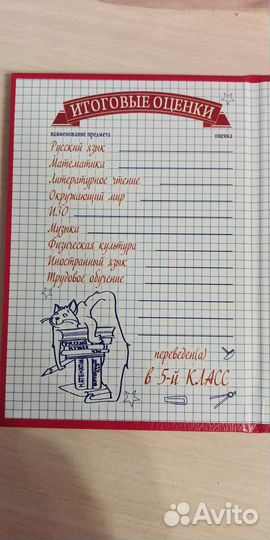 ИТОГОВЫЕ ОЦЕНКИ
наименование предмета оценка
Русский язык
Математика
Литературное чтение
Окружающий мир
ИЗО
Музыка
Физическая культура
Иностранный язык
Трудовое обучение
РУССКИЙ
ЯЗЫК
МАТЕМАТИКА
переведен(а)
в 5-й КЛАСС
Avito